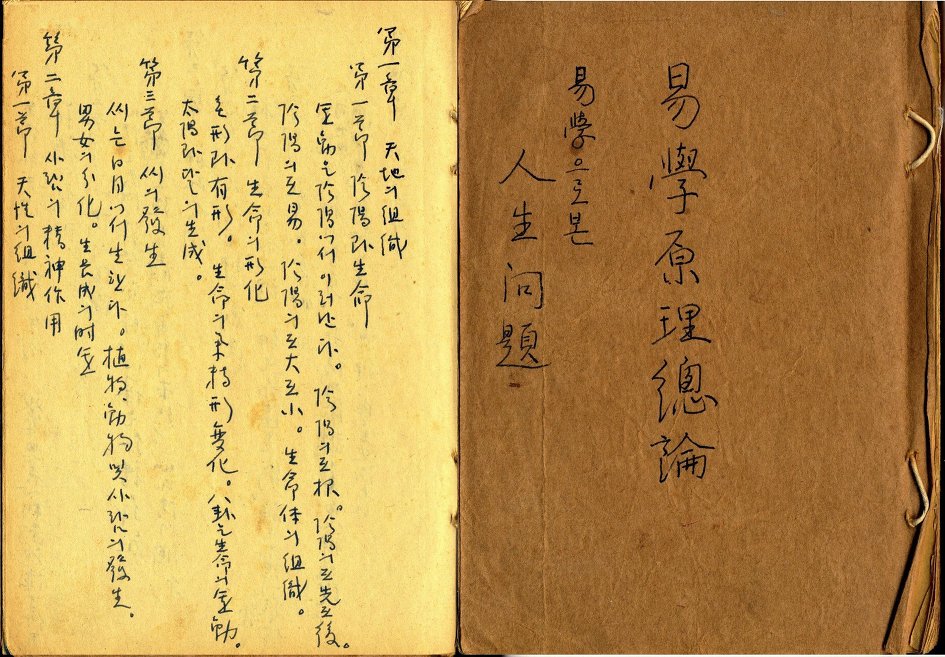 易學原理總論
易學으로본
人生問題
第一章 天地의組織
第一節 陰陽과生命
運動은陰陽에서이러난다。陰陽의互根。陰陽의互先互後。
陰陽의互易。陰陽의互大互小。生命体의組織。
第二節 生命의形化
無形과有形。生命의 形變化。八卦는生命의運動。
太陽과 生成。
第三節 씨의發生
씨는日月에서生한다。植物、動物 사람의發生。
男女의分化。生長成의時運
第二章 사람의精神作用
第一節 天性의組織